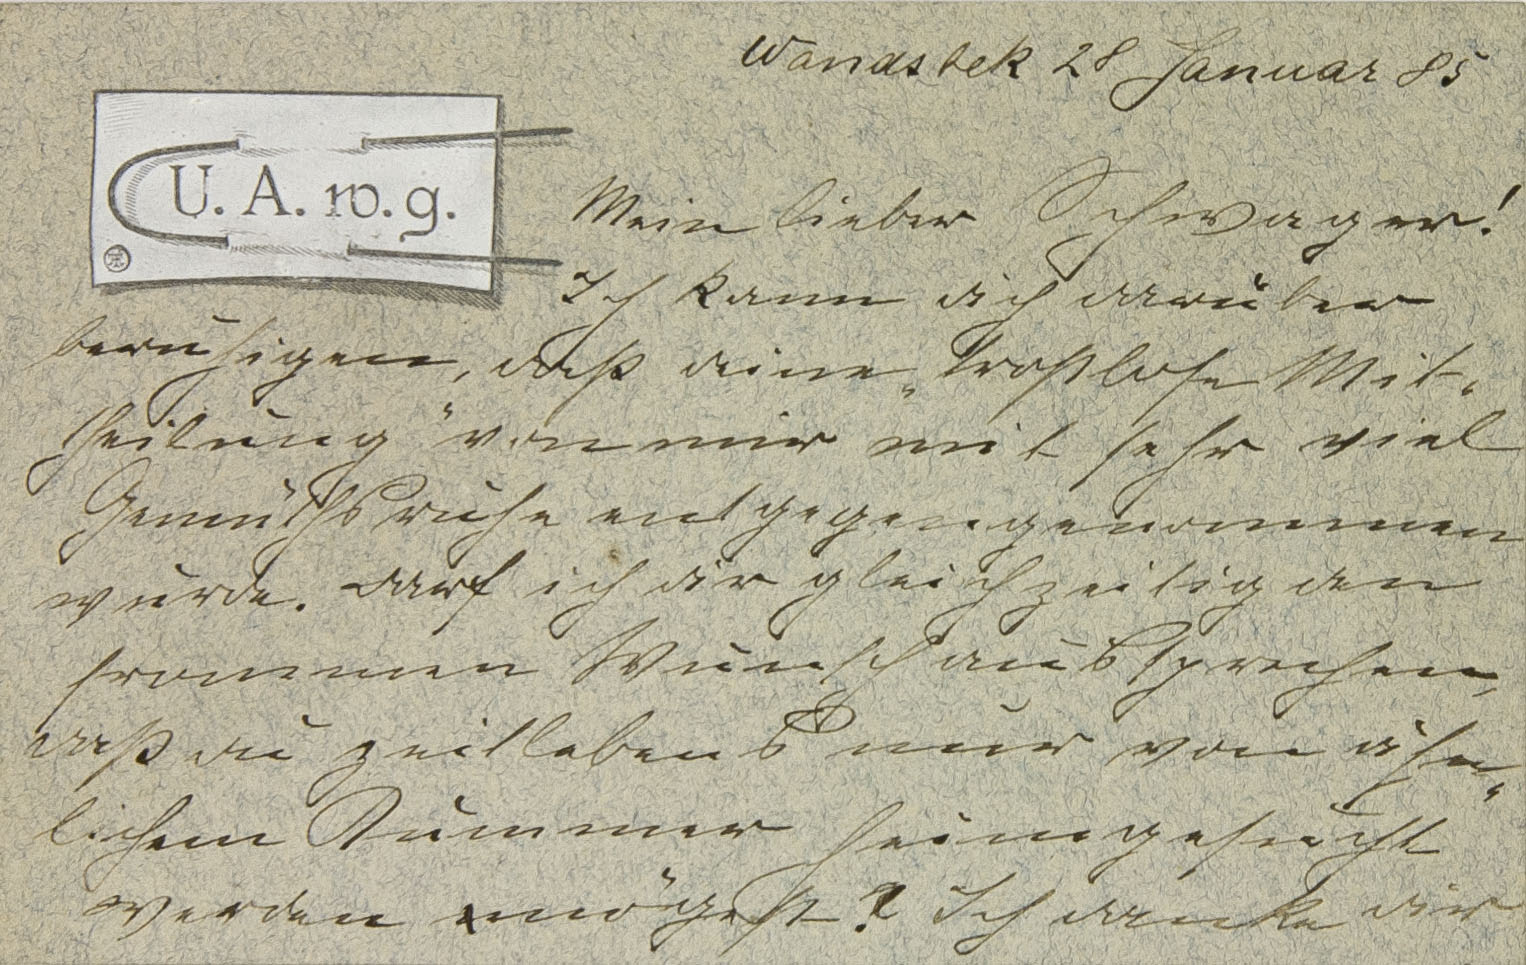 Wandsbek 28 Januar 85
U. A. w. g.
Mein lieber Schwager!
Ich kann dich darüber
beruhigen, daß deine „trostlose Mit-
theilung" von mir mit sehr viel
Gemüthsruhe entgegengenommen
wurde. Darf ich dir gleichzeitig den
frommen Wunsch aussprechen,
daß du zeitlebens nur von ähn-
lichem Kummer heimgesucht
werden mögest? Ich danke dir